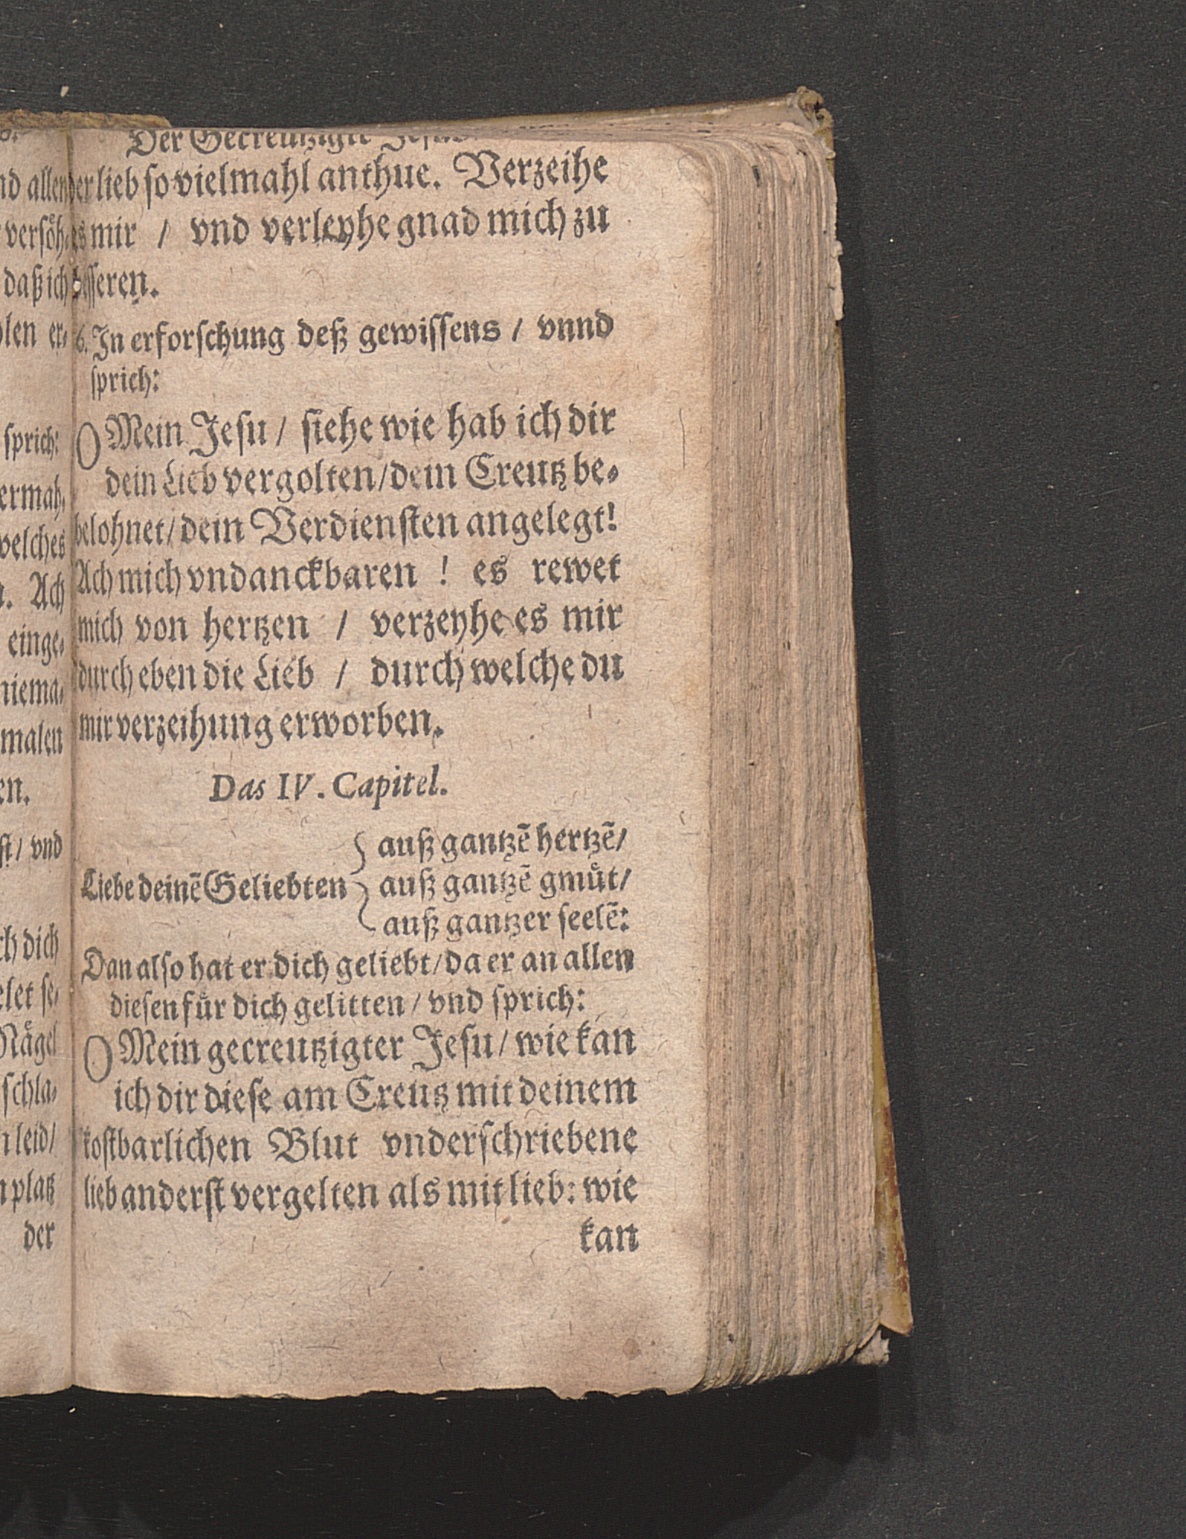 nd allen
versöh-
daß ich
len er-
sprich:
ermah-
welches
n. Ach
einge-
niema-
malen
en.
st / vnd
ch dich
elet se-
Nägel
schla-
n leid /
platz
der
Der Gecreutzigte Jesus
der lieb so vielmahl anthue. Verzeihe
es mir / vnd verleyhe gnad mich zu
besseren.
6. In erforschung deß gewissens / vnnd
sprich:
O Mein Jesu / siehe wie hab ich dir
dein Lieb vergolten / dein Creutz be-
belohnet / dein Verdiensten angelegt!
Ach mich vndanckbaren ! es rewet
mich von hertzen / verzeyhe es mir
durch eben die Lieb / durch welche du
mir verzeihung erworben.
Das IV. Capitel.
auß gantzē hertzē /
Liebe deinē Geliebten auß gantzē gmuͤt /
auß gantzer seelē:
Dan also hat er dich geliebt / da er an allen
diesen fuͤr dich gelitten / vnd sprich:
O Mein gecreutzigter Jesu / wie kan
ich dir diese am Creutz mit deinem
kostbarlichen Blut vnderschriebene
lieb anderst vergelten als mit lieb: wie
kan